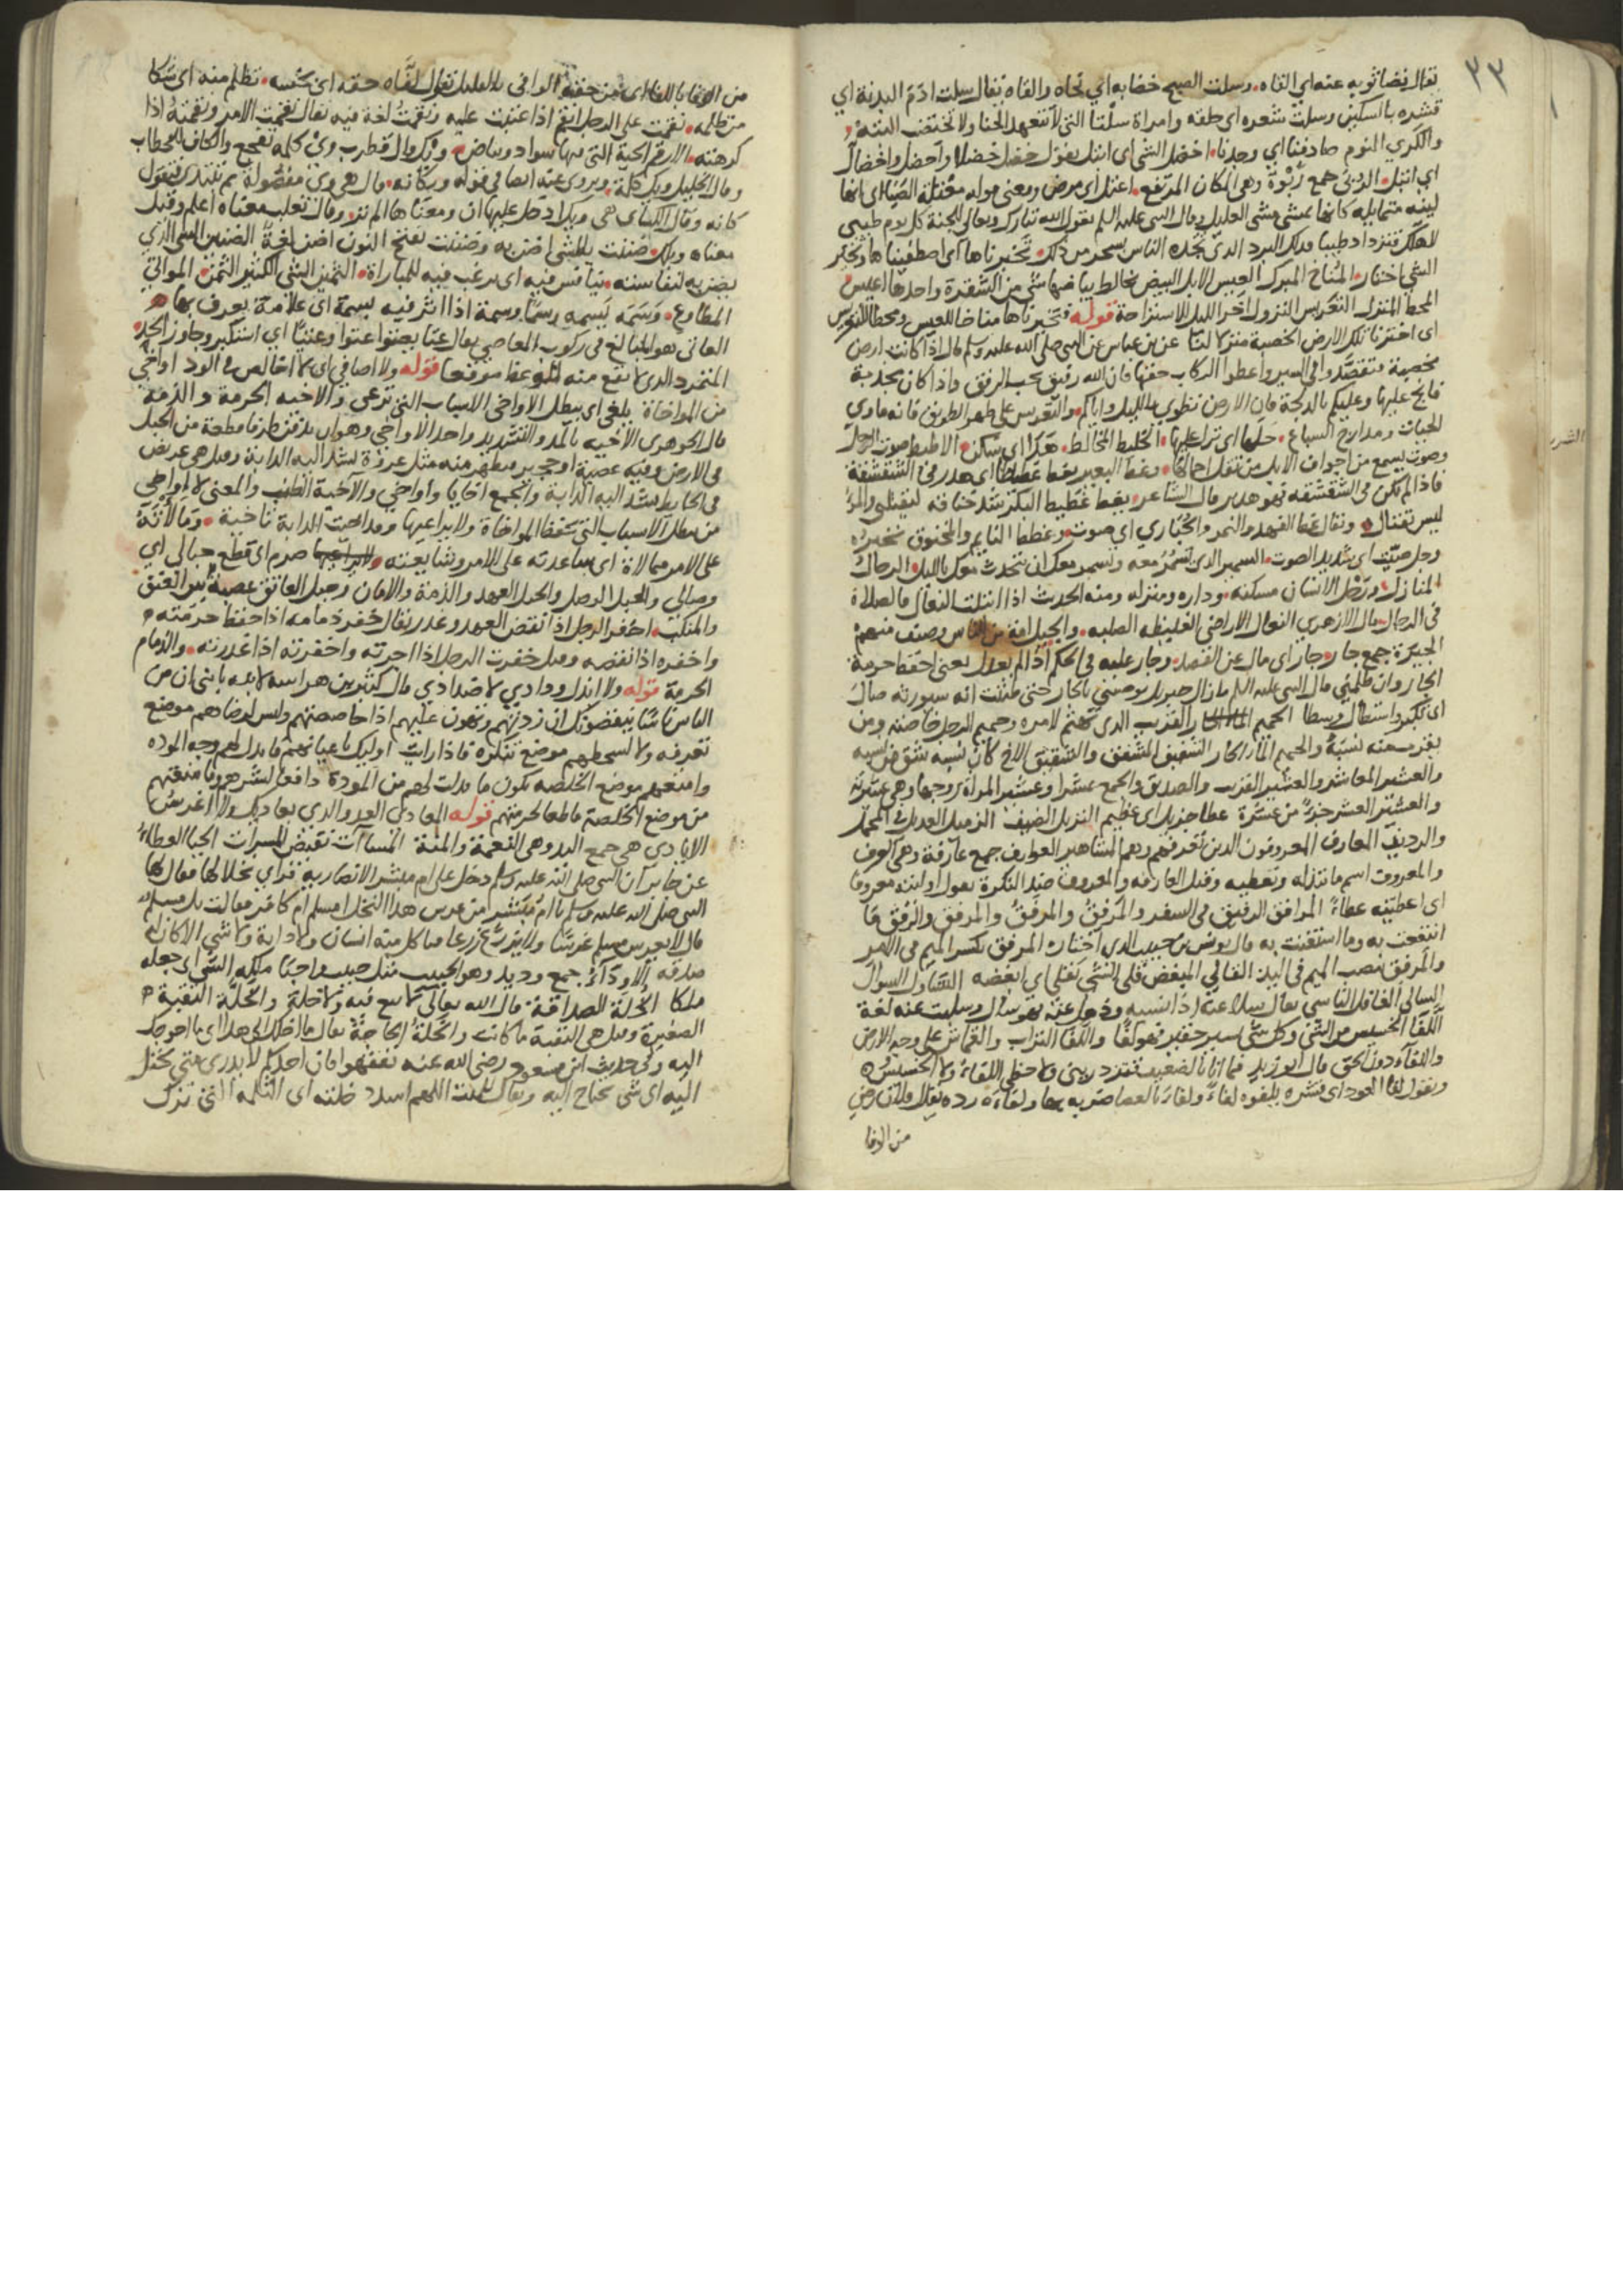 ٣٣
يقال نضا ثوبه عنه اي القاه وسلت الصبح خضابه اي نحاه والقاه يقال سلت ادم البدنة اي
قشره بالسكين وسلت شعره اي حلقه وامراة سلتا التي لا تتعهد الحنا ولا تختضب البتة
والكري النوم صادفنا اي وجدنا اخضل الشي اى ابتل يقول خضل خضلا واخضل واخضال
اي ابتل الربى جمع ربوة وهى المكان المرتفع اعتل اى مرض ومعنى قوله معتلة الصبا اى انها
لينة متمايله كانها تمشي مشى العليل وقال النبى عليه السلم يقول الله تبارك وتعالى للجنة كل يوم طيبي
لاهلك فتزداد طيبا فذلك البرد الذى يجده الناس بسحر من ذلك تخيرناها اى اصطفيناها وتخير
الشي اختاره المناخ المبرك العيس الابل البيض يخالط بياضها شي من الشقرة واحدها اعيس
المحط المنزل التعريس النزول اخر الليل للاستراحة قوله تخيرناها مناخا للعيس ومحطا للتعريس
اى اخترنا تلك الارض الخصبة منزلا لنا عن بن عباس عن النبى صلى الله عليه وسلم قال اذا كانت ارض
مخصبة فتقصدوا في السير واعطوا الركاب حقها فان الله رفيق يحب الرفق واذا كان مجدبة
فانج عليها وعليكم بالدلجة فان الارض تطوى بالليل واياكم والتعريس على ظهر الطريق فانه ماوي
الحيات ومدارج السباع حلها اى نزل عليها الخليط المخالط هدا اي سكن الاطيط صوت الرحل
وصوت يسمع من اجواف الابل من ثقل احمالها وغط البعير يغط غطيطا اى هدر فى الشقشقة
فاذا لم يكن فى الشقشقه فهو هدير قال الشاعر يغط غطيط البكر شد خناقه ليقتلى والمرء
ليس بقتال ويقال غط الفهد والنمر والحباري اي صوت وغطط النايم والمخنوق نخيره
رجل صيت اى شديد الصوت السمير الذى تسمر معه والسمر معك ان تتحدث معك بالليل الرحال
المنازل ورحل الانسان مسكنه وداره ومنزله ومنه الحديث اذا ابتلت النعال فالصلاة
فى الرحال قال الازهري النعال الاراضي الغليظه الصلبه والجيل امة من الناس وصنف منهم
الجيرة جمع جار وجار اى مال عن القصد وجار عليه في الحكم اذا لم يعدل يعنى احفظ حرمة
الجار وان ظلمني قال النبى عليه السلم ما زال جبريل يوصيني بالجار حتى ظننت انه سيورثه صال
اى تكبر واستطال وسطا الحميم القريب الذى تهتم لامره وحميم الرجل خاصته ومن
يقرب منه نسبة والحميم الماء الحار الشفيق المشفق والشقيق الاخ كان نسبه شق من نسبه
والعشير المعاشر والعشير القريب والصديق والجمع عشرا وعشير المراة زوجها وهى عشيرته
والعشير العشر جزء من عشرة عطا جزيل اى عظيم النزيل الضيف الزميل العديل فى المحمل
والرديف المعارف المعروفون الذين تعرفهم وهم المشاهير العوارف جمع عارفة وهى العرف
والمعروف اسم ما تبذله وتعطيه وقيل العارفه والمعروف ضد النكرة يقول اوليته معروفا
اى اعطيته عطاء المرافق الرفيق فى السفر والمرفق والمرفق والمرفق والرفق ما
انتفعت به وما استعنت به قال يونس بن حبيب الذى اختاره المرفق بكسر الميم فى الامر
والمرفق بنصب الميم فى اليد القالي المبغض قلى الشي تقلي اي ابغضه التساول السوال
السالي الغافل الناسي يقال سلا عنه اذا نسيه وذهل عنه فهو سال وسليت عنه لغة
اللفا الخسيس من الشئ وكل شئ يسير حقير فهو لفا واللفا التراب والقماش على وجه الارض
واللفاء دون الحق قال ابو زبيد فما انا بالضعيف فتزدريني ولا حظي اللفاء ولا الخسيس
وتقول لفا العود اى قشره يلفوه لفاء ولفاء بالعصا ضربه بها ولفاءه رده يقال فلان رضي
من الوفا
من الوفا باللفا اى من حقه الوافى بالقليل تقول لفاه حقه اى بخسه تظلم منه اى شكا
من ظلمه نقمت على الرجل انقم اذا عتبت عليه ونقمت لغة فيه يقال نقمت الامر ونقمته اذا
كرهته الارقم الحية التى فيها سواد وبياض ويك قال قطرب وى كلمة تفجع والكاف للخطاب
وقال الخليل ويك كلمة ويروى عنه ايضا في قوله ويكانه قال هى وى مفصولة ثم تبتدى فتقول
كانه وقال الكسائى هى ويك ادخل عليها ان ومعناها الم تر وقال ثعلب معناه اعلم وقيل
معناه ويلك ضننت بالشى اضن به وضننت بفتح النون اضن لغة الضنين الشى الذي
يضن به لنفاسته يتنافس فيه اى يرغب فيه للمباراة الثمين الشى الكثير الثمن المواتي
المطاوع وسمه يسمه وسما وسمة اذا اثر فيه بسمة اى علامة يعرف بها
العاتى هو المبالغ فى ركوب المعاصي يقال عتا يعتوا عتوا وعتيا اى استكبر وجاوز الحد
المتمرد الذى لا يقع منه الوعظ موقعا قوله ولا اصافي اى لا اخالص فى الود اواخي
من المواخاة يلغي اى يبطل الاواخى الاسباب التى ترعى والاخيه الحرمة والذمة
قال الجوهرى الاخيه بالمد والتشديد واحد الاواخي وهو ان يدفن طرفا قطعة من الحبل
فى الارض وفيه عصية او حجير فيظهر منه مثل عروة تشد اليه الدابة وقيل هى عريض
فى الحايط تشد اليه الدابة والجمع اخايا واواخي والاخية الطنب والمعنى لا اواخي
من يبطل الاسباب التى تحفظ المواخاة ولا يراعيها وقد اخيت للدابة تاخية وما لاته
على الامر ممالاة اى ساعدته على الامر وشايعته صرم اى قطع حبالى اي
وصالي والحبل الوصل والحبل العهد والذمة والامان وحبل العاتق عصبة بين العنق
والمنكب اخفر الرجل اذا نقض العهد وغدر يقال خفر ذمامه اذا حفظ حرمته
واخفره اذا نقضه وقيل خفرت الرجل اذا اجرته واخفرته اذا غدرته والذمام
الحرمة قوله ولا ابذل ودادي لاضدادي قال كثير بن هراسه لابنه يا بنى ان من
الناس ناسا ينقصونك ان زدتهم وتهون عليهم اذا خاصصتهم وليس لرضاهم موضع
تعرفه ولا لسخطهم موضع تنكره فاذا رايت اوليك باعيانهم فابذل لهم وجه الموده
وامنعهم موضع الخلصه يكون ما بذلت لهم من المودة دافعا لشرهم وما منعتهم
من موضع الخلصة قاطعا لحرمتهم قوله المعادى العدو والذى يعاديك ولا اغرس
الايادي هى جمع اليد وهى النعمة والمنة المساآت نقيض المسرات الحبا العطاء
عن جابر ان النبى صلى الله عليه وسلم دخل على ام مبشر الانصارية فراي نخلا لها فقال لها
النبى صلى الله عليه وسلم يا ام مبشر من غرس هذا النخل امسلم ام كافر فقالت بل مسلم
قال لا يغرس مسلم غرسا ولا يزرع زرعا فياكل منه انسان ولا دابة ولا شي الا كان له
صدقه الاوداء جمع وديد وهو الحبيب مثل حبيب واحبا ملكه الشى اى جعله
ملكا الخلة الصداقة قال الله تعالى لا بيع فيه ولا خلة والخلة البقية
الصغيرة وقيل هى البقية ما كانت والخلة الحاجة يقال ما اخلك الى هذا اى ما احوجك
اليه وفى حديث ابن مسعود رضى الله عنه تفقهوا فان احدكم لا يدرى متى يختل
اليه اى متى يحتاج اليه ويقال للميت اللهم اسدد خلته اى الثلمه التى ترك